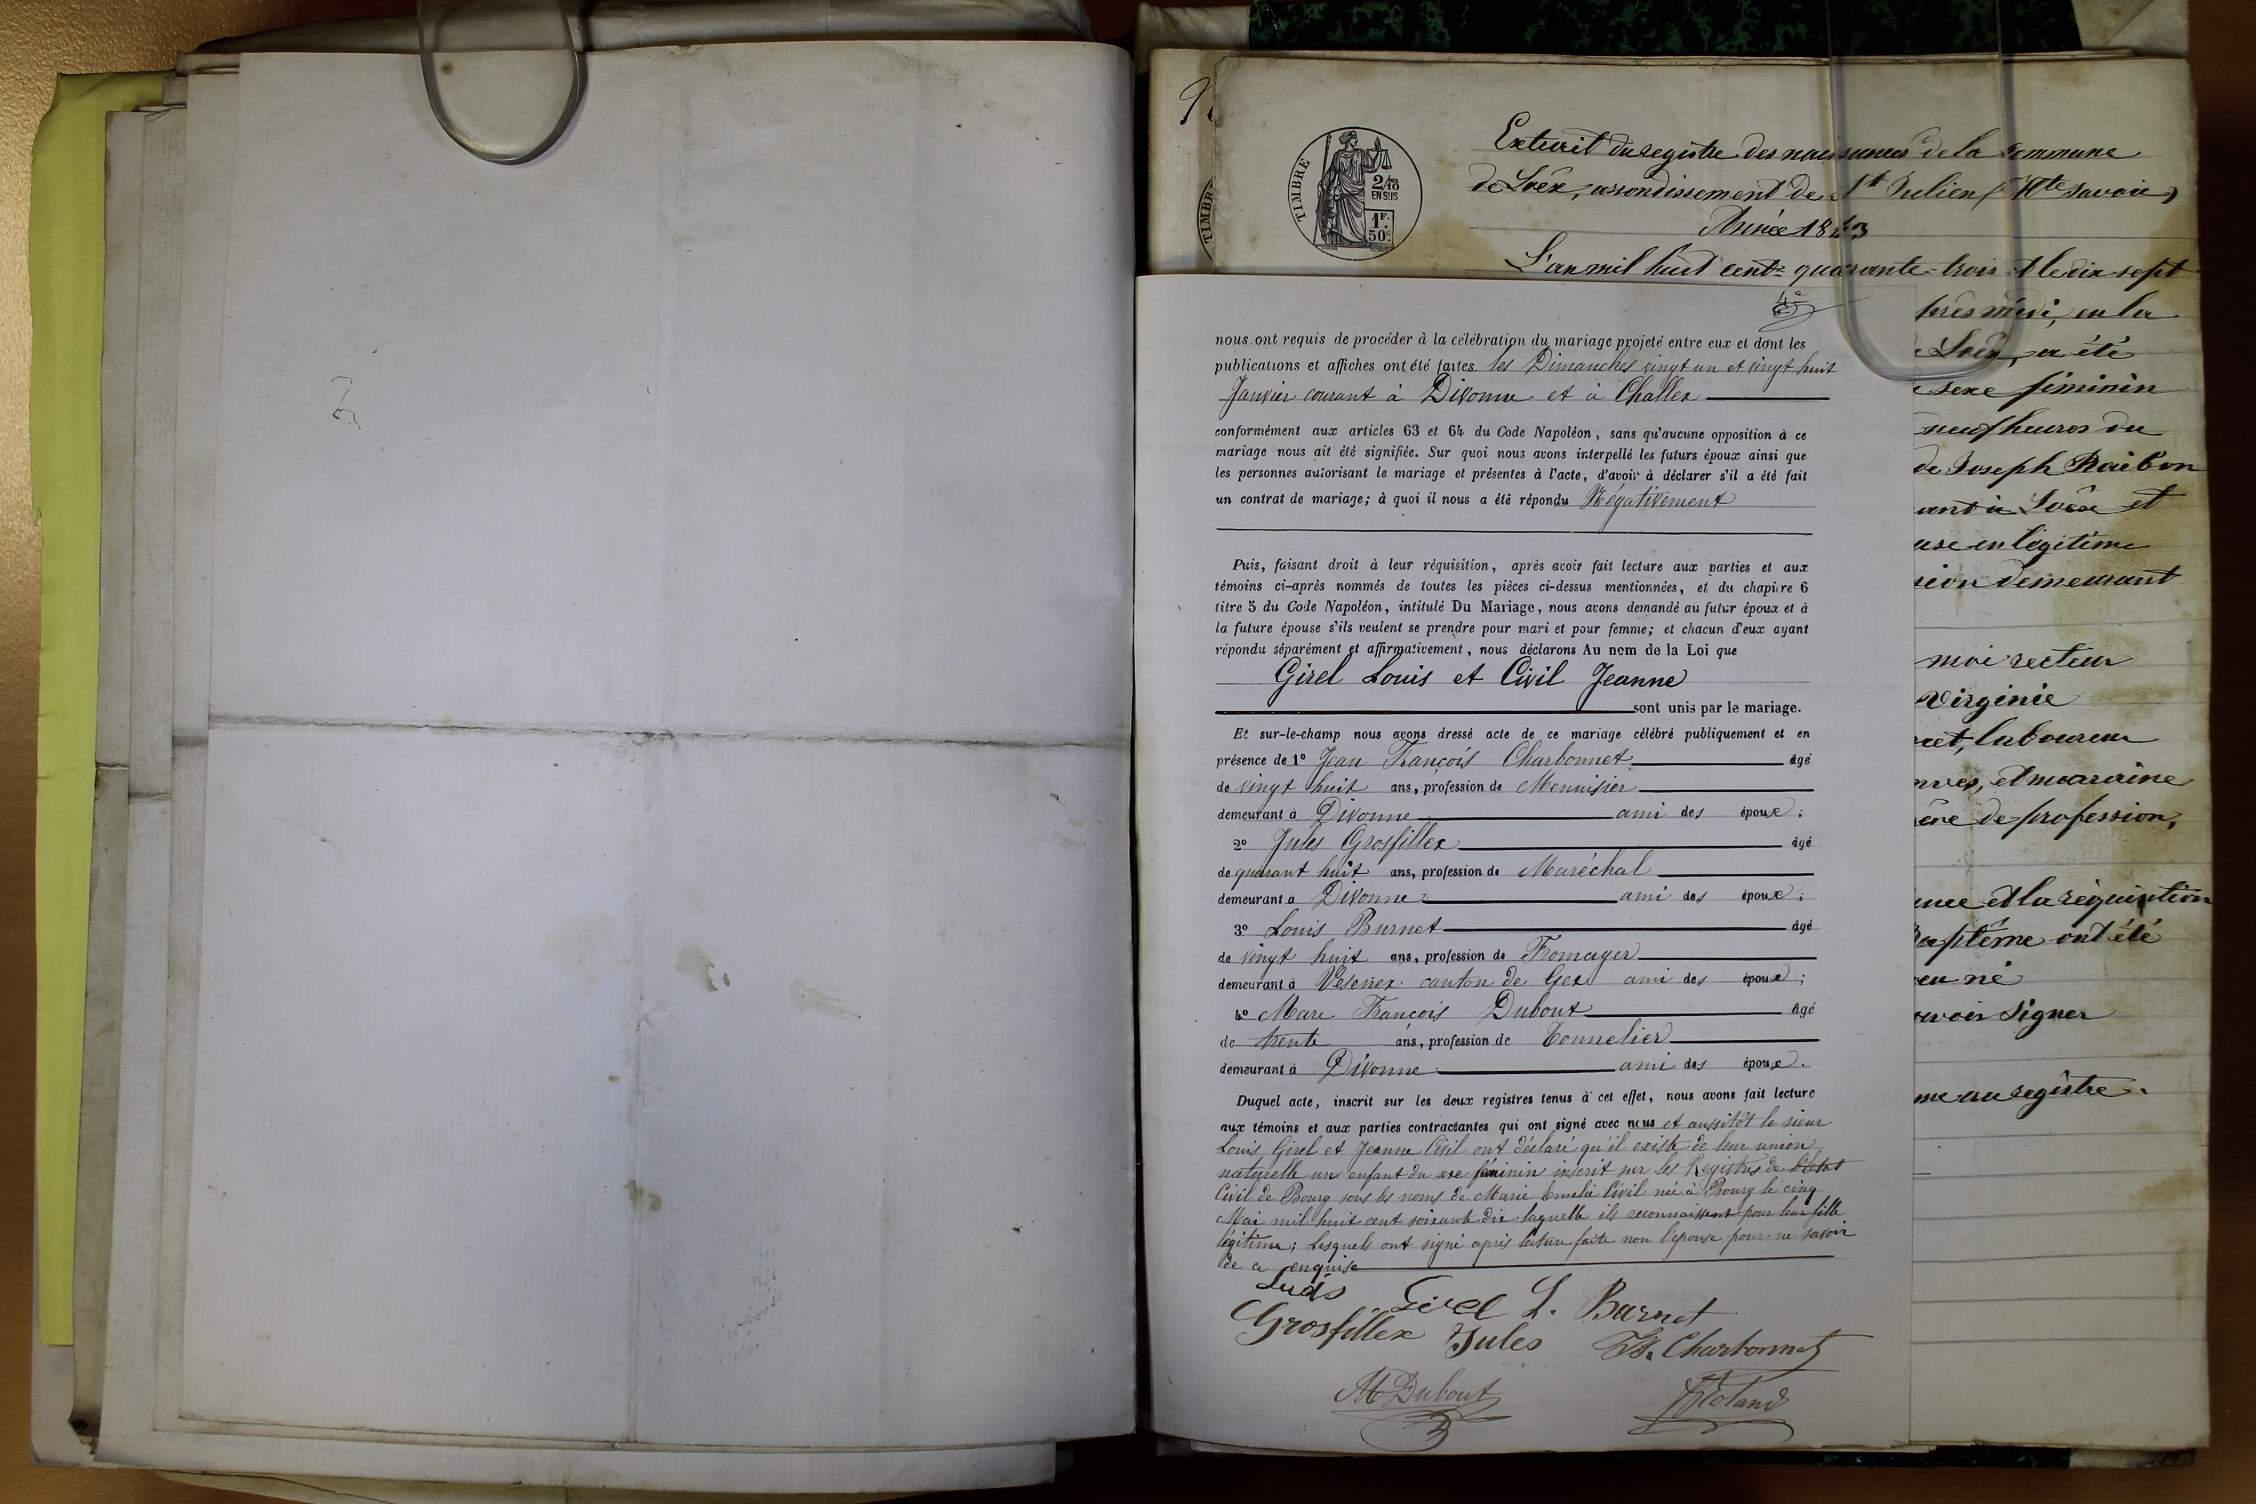 TIMBRE
2/10
EN SUS
1F.
50c.
TIMBRE
Extrait du registre des naissances de la commune
de Loëx, arrondissement de St Julien (Hte Savoie)
Année 1843
L'an mil huit cent quarante trois et le dix sept
près midi, en la
Loëx, a été
sexe féminin
neuf heures du
de Joseph Raibon
ant à Loëx et
use en légitime
sion demeurant
moi recteur
Virginie
laboureur
et marraine
de profession,
et la réquisition
baptême ont été
né
avoir signer
me au registre.
nous ont requis de procéder à la célébration du mariage projeté entre eux et dont les
publications et affiches ont été faites les Dimanches vingt un et vingt huit
Janvier courant à Divonne et à Challex
conformément aux articles 63 et 64 du Code Napoléon, sans qu'aucune opposition à ce
mariage nous ait été signifiée. Sur quoi nous avons interpellé les futurs époux ainsi que
les personnes autorisant le mariage et présentes à l'acte, d'avoir à déclarer s'il a été fait
un contrat de mariage; à quoi il nous a été répondu Négativement
Puis, faisant droit à leur réquisition, après avoir fait lecture aux parties et aux
témoins ci-après nommés de toutes les pièces ci-dessus mentionnées, et du chapitre 6
titre 5 du Code Napoléon, intitulé Du Mariage, nous avons demandé au futur époux et à
la future épouse s'ils veulent se prendre pour mari et pour femme; et chacun d'eux ayant
répondu séparément et affirmativement, nous déclarons Au nom de la Loi que
Girel Louis et Civil Jeanne
sont unis par le mariage.
Et sur-le-champ nous avons dressé acte de ce mariage célébré publiquement et en
présence de 1° Jean François Charbonnet âgé
de vingt huit ans, profession de Menuisier
demeurant à Divonne ami des époux;
2° Jules Grosfillex âgé
de quarant huit ans, profession de Maréchal
demeurant à Divonne ami des époux;
3° Louis Burnet âgé
de vingt huit ans, profession de Fromager
demeurant à Vésenex canton de Gex ami des époux;
4° Marc François Dubout âgé
de trente ans, profession de Tonnelier
demeurant à Divonne ami des époux.
Duquel acte, inscrit sur les deux registres tenus à cet effet, nous avons fait lecture
aux témoins et aux parties contractantes qui ont signé avec nous et aussitôt le sieur
Louis Girel et Jeanne Civil ont déclaré qu'il existe de leur union
naturelle un enfant du sexe féminin inscrit sur les Registres de l'état
Civil de Bourg sous les noms de Marie Emelie Civil née à Bourg le cinq
Mai mil huit cent soixante dix laquelle ils reconnaissent pour leur fille
légitime; Lesquels ont signé après lecture faite non l'épouse pour ne savoir
de ce enquise
Luds Girel L. Burnet
Grosfillex Jules Charbonnet
M Dubout Roland